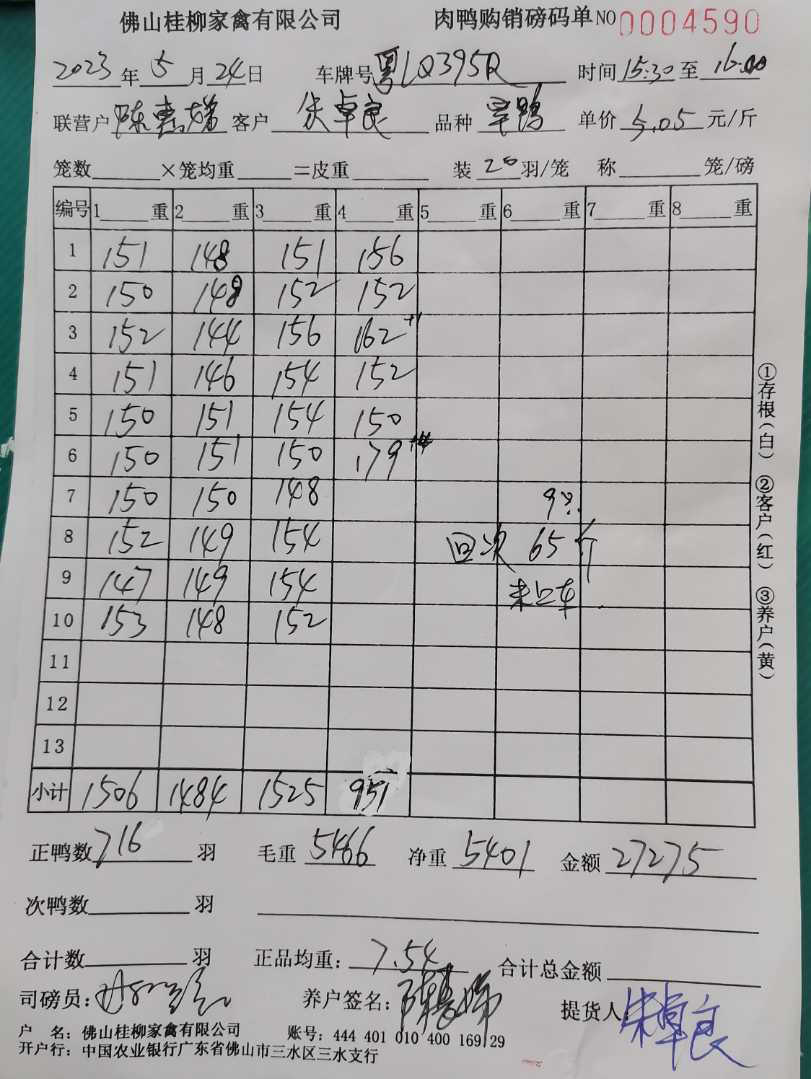 佛山桂柳家禽有限公司 肉鸭购销磅码单 NO 0004590
2023年5月24日 车牌号粤LQ395R 时间15:30至16:00
联营户陈惠娣 客户朱卓良 品种旱鸭 单价5.05元/斤
笼数 ×笼均重 =皮重 装20羽/笼 称 笼/磅
编号 1 重 2 重 3 重 4 重 5 重 6 重 7 重 8 重
1 151 148 151 156
2 150 148 152 152
3 152 144 156 162+1
4 151 146 154 152
5 150 151 154 150
6 150 151 150 179
7 150 150 148 9只
8 152 149 154 回次 65斤
9 147 149 154 未上车
10 153 148 152
11
12
13
小计 1506 1484 1525 951
正鸭数716羽 毛重5466 净重5401 金额27275
次鸭数 羽
合计数 羽 正品均重:7.54 合计总金额
司磅员: 养户签名:陈惠娣 提货人:朱卓良
户 名:佛山桂柳家禽有限公司 账号:444 401 010 400 169 29
开户行:中国农业银行广东省佛山市三水区三水支行
①存根(白) ②客户(红) ③养户(黄)